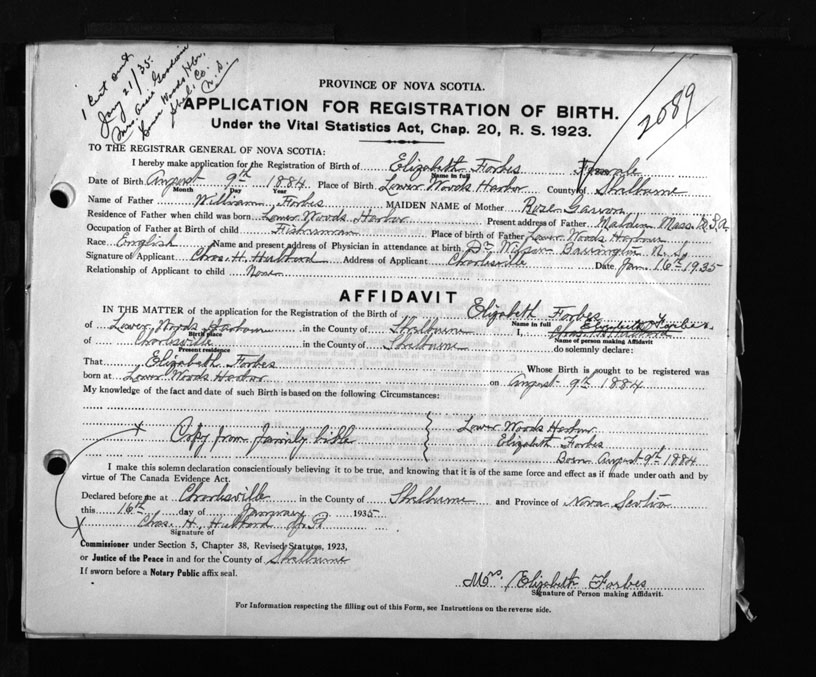 1 Cert sent
Jany 21/35.
Mrs. Assie Goodwin
Lower Woods Hbr.
Shel. Co.
N.S.
2089
PROVINCE OF NOVA SCOTIA.
APPLICATION FOR REGISTRATION OF BIRTH.
Under the Vital Statistics Act, Chap. 20, R. S. 1923.
TO THE REGISTRAR GENERAL OF NOVA SCOTIA:
I hereby make application for the Registration of Birth of Elizabeth Forbes Female
Name in full
Date of Birth August 9th 1884 Place of Birth Lower Woods Harbor County of Shelburne
Month Day Year
Name of Father William Forbes MAIDEN NAME of Mother Rose
Residence of Father when child was born Lower Woods Harbor Present address of Father Malden Mass. U.S.A.
Occupation of Father at Birth of Child Fisherman Place of birth of Father Lower Woods Harbour
Race English Name and present address of Physician in attendance at birth Dr. Wilson Barrington N.S.
Signature of Applicant Chas. H. Hubbard Address of Applicant Charlesville Date Jan 16th 1935
Relationship of Applicant to child None
AFFIDAVIT
IN THE MATTER of the application for the Registration of the Birth of Elizabeth Forbes
Name in full
of Lower Woods Harbour in the County of Shelburne I, Elizabeth Forbes
Birth place
of Charlesville in the County of Shelburne do solemnly declare:
Present residence Name of person making Affidavit
That Elizabeth Forbes Whose Birth is sought to be registered was
born at Lower Woods Harbor on August 9th 1884
My knowledge of the fact and date of such Birth is based on the following Circumstances:
Copy from family bible
Lower Woods Harbor
Elizabeth Forbes
Born August 9th 1884
I make this solemn declaration conscientiously believing it to be true, and knowing that it is of the same force and effect as if made under oath and by
virtue of The Canada Evidence Act.
Declared before me at Charlesville in the County of Shelburne and Province of Nova Scotia
this 16th day of January 1935
Chas. H. Hubbard J.P.
Signature of
Commissioner under Section 5, Chapter 38, Revised Statutes, 1923,
or Justice of the Peace in and for the County of Shelburne
If sworn before a Notary Public affix seal.
Mrs. Elizabeth Forbes
Signature of Person making Affidavit.
For Information respecting the filling out of this Form, see Instructions on the reverse side.